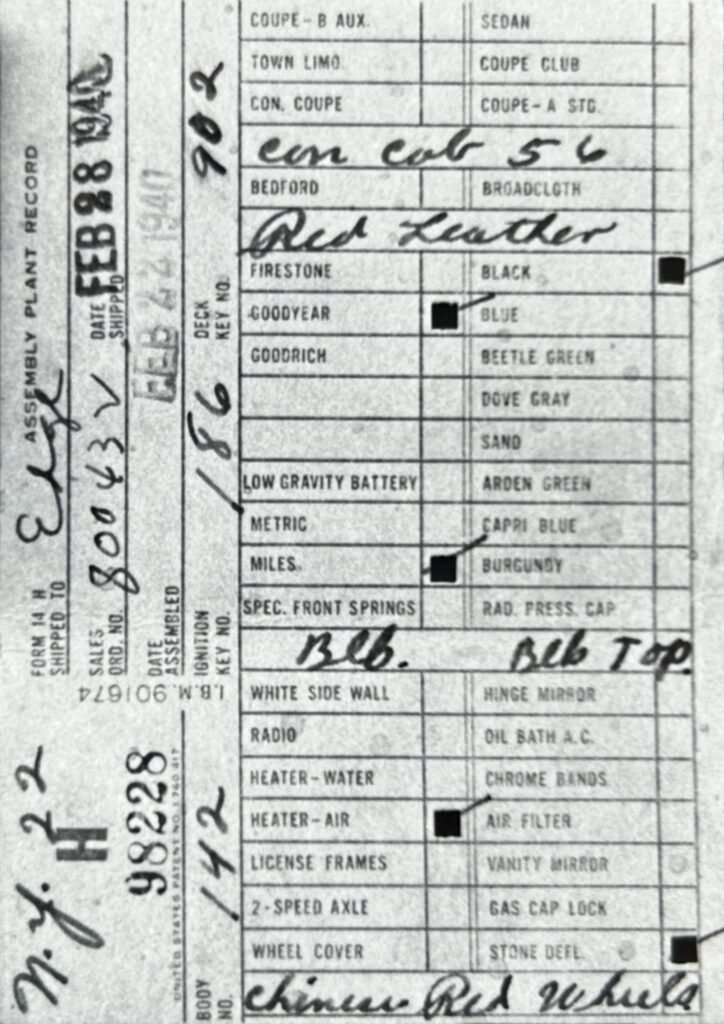 FORM 14 H ASSEMBLY PLANT RECORD
SHIPPED TO Edge
SALES ORD. NO. 80043
DATE SHIPPED FEB 28 1940
DATE ASSEMBLED FEB 22 1940
IGNITION KEY NO. 186
DECK KEY NO. 902
I.B.M. 901674
N.Y. 22
H
98228
UNITED STATES PATENT NO.
BODY NO. 142
COUPE-B AUX. SEDAN
TOWN LIMO. COUPE CLUB
CON. COUPE COUPE-A STD.
con cab 56
BEDFORD BROADCLOTH
Red Leather
FIRESTONE BLACK
GOODYEAR BLUE
GOODRICH BEETLE GREEN
DOVE GRAY
SAND
LOW GRAVITY BATTERY ARDEN GREEN
METRIC CAPRI BLUE
MILES BURGUNDY
SPEC. FRONT SPRINGS RAD. PRESS. CAP
Blb. Blb Top.
WHITE SIDE WALL HINGE MIRROR
RADIO OIL BATH A.C.
HEATER-WATER CHROME BANDS
HEATER-AIR AIR FILTER
LICENSE FRAMES VANITY MIRROR
2-SPEED AXLE GAS CAP LOCK
WHEEL COVER STONE DEFL.
Chinese Red Wheels